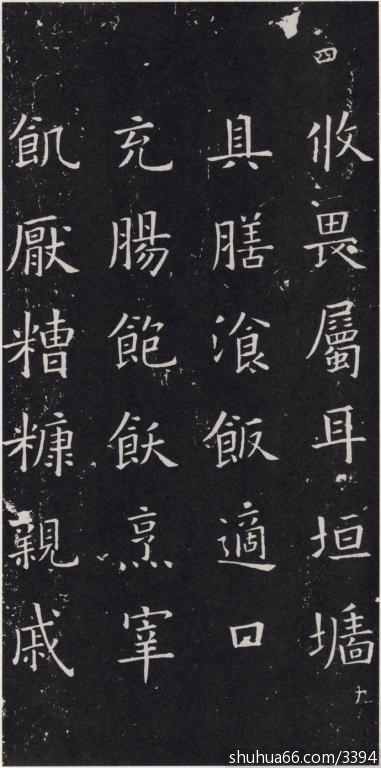 四
攸畏屬耳垣墻
具膳湌飯適口
充腸飽飫烹宰
飢厭糟糠親戚
shuhua66.com/3394